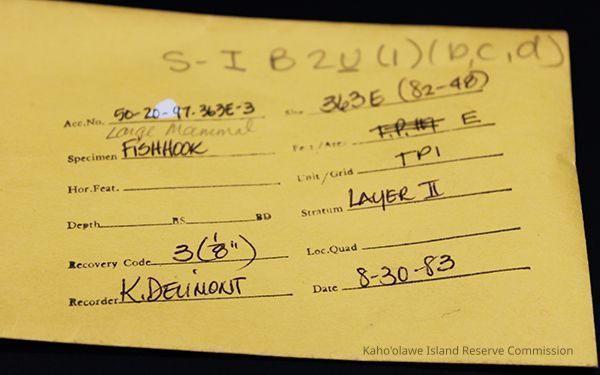 S-I B2U(1)(b,c,d)
Acc.No. 50-20-97-363E-3 Site 363E (82-48)
Large Mammal
Specimen FISHHOOK Fea/Area T.P.#7 E
Hor.Feat. Unit/Grid TP1
Depth BS BD Stratum LAYER II
Recovery Code 3 (1/8") Loc.Quad
Recorder K.DELIMONT Date 8-30-83
Kaho'olawe Island Reserve Commission